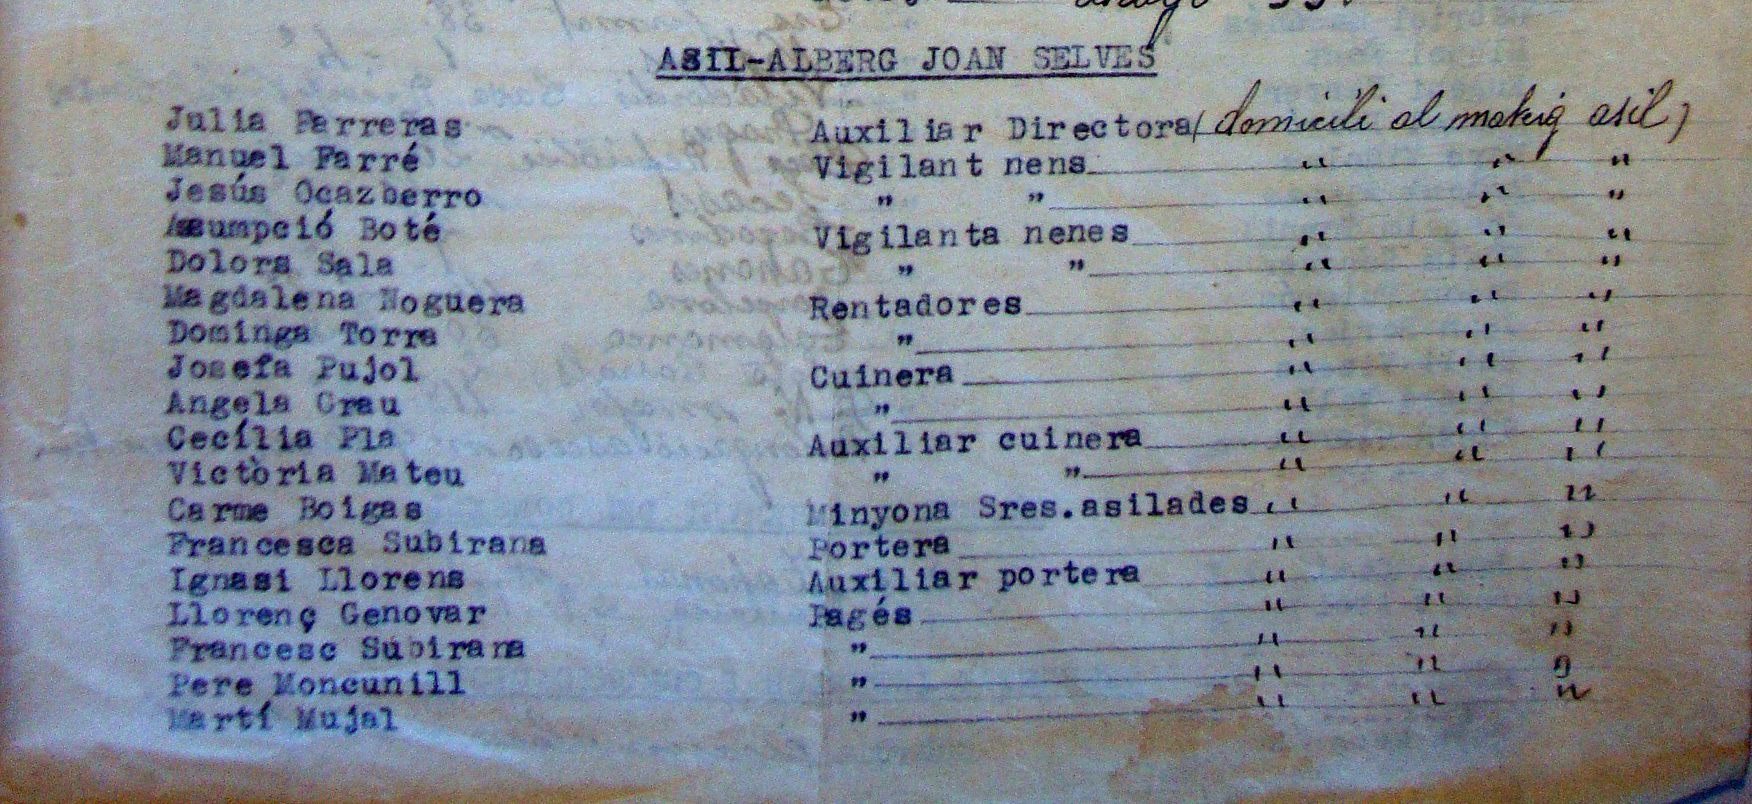 ASIL-ALBERG JOAN SELVES
Julia Farreras Auxiliar Directora (domicili al mateig asil)
Manuel Farré Vigilant nens " " "
Jesús Ocazberro " " " " "
Assumpció Boté Vigilanta nenes " " "
Dolors Sala " " " " "
Magdalena Noguera Rentadores " " "
Dominga Torra " " " "
Josefa Pujol Cuinera " " "
Angela Grau " " " "
Cecília Pla Auxiliar cuinera " " "
Victòria Mateu " " " " "
Carme Boigas Minyona Sres.asilades " " "
Francesca Subirana Portera " " "
Ignasi Llorens Auxiliar portera " " "
Llorenç Genovar Pagés " " "
Francesc Subirana " " " "
Pere Moncunill " " " "
Martí Mujal " " " "